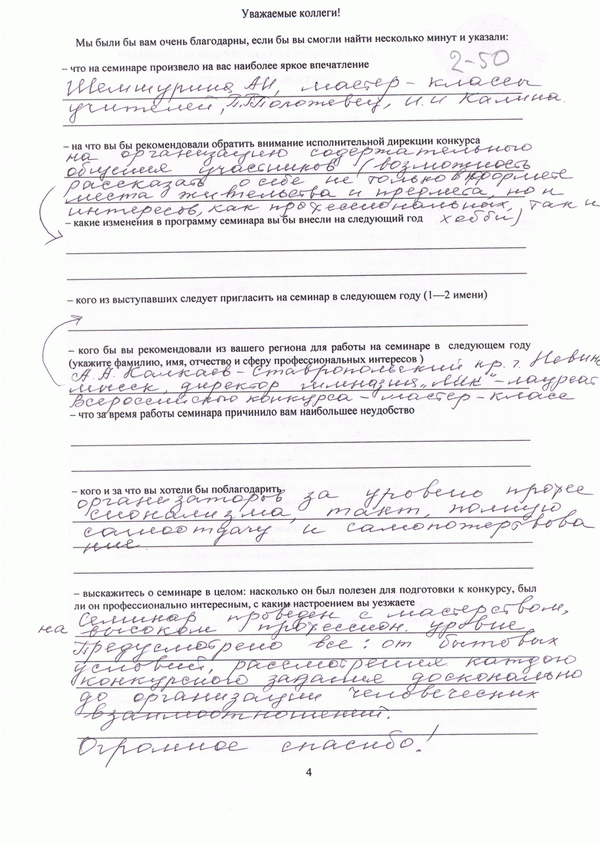 Уважаемые коллеги!
Мы были бы вам очень благодарны, если бы вы смогли найти несколько минут и указали:
2-50
– что на семинаре произвело на вас наиболее яркое впечатление
АИ, мастер-классы
учителей, И.И Калина.
– на что вы бы рекомендовали обратить внимание исполнительной дирекции конкурса
на организацию содержательного
общения участников (возможность
рассказать о себе не только в формате
места жительства и предмета, но и
интересов, как профессиональных, так и
хобби)
– какие изменения в программу семинара вы бы внесли на следующий год
– кого из выступавших следует пригласить на семинар в следующем году (1—2 имени)
– кого бы вы рекомендовали из вашего региона для работы на семинаре в следующем году
(укажите фамилию, имя, отчество и сферу профессиональных интересов )
А.А. Калкаев – Ставропольский кр. г. Невин
мысск, директор гимназия „ЛИК“ – лауреат
Всероссийского конкурса – мастер-класс
– что за время работы семинара причинило вам наибольшее неудобство
– кого и за что вы хотели бы поблагодарить
организаторов за уровень профес
сионализма, такт, полную
самоотдачу и самопожертвова
ние.
– выскажитесь о семинаре в целом: насколько он был полезен для подготовки к конкурсу, был
ли он профессионально интересным, с каким настроением вы уезжаете
Семинар проведен с мастерством,
на высоком профессион. уровне.
Предусмотрено все: от бытовых
условий, рассмотрения каждого
конкурсного задания досконально
до организации человеческих
взаимоотношений.
Огромное спасибо!
4